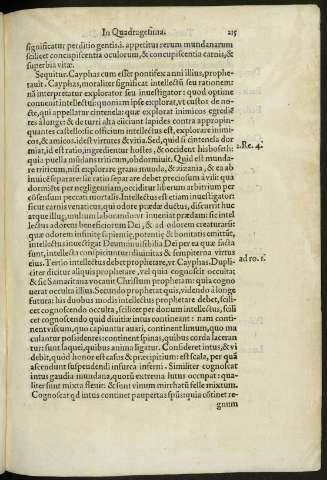 In Quadragesima. 215
significatur perditio gentiū. appetitus rerum mundanarum
scilicet concupiscentia oculorum, & concupiscentia carnis, &
superbia vitæ.
Sequitur. Cayphas cum esset pontifex anni illius, prophe-
tauit. Cayphas, moraliter significat intellectū seu rationem:
nā interpretatur explorator seu inuestigator: quod optime
conuenit intellectui: quoniam ipse explorat, vt custos de no-
cte, qui appellatur cintenela: quæ explorat inimicos egredie
tes à longe: & de turri alta clicitant lapides contra appropin-
quantes castello: sic officium intellectus est, explorare inimi-
cos, & amicos, idest virtutes & vitia. Sed, quid si cintenela dor
miat, id est ratio, ingrediuntur hostes, & occident hisboseth:
quia puella mūdans triticum, obdormiuit. Quid est munda-
re triticum, nisi explorare grana munda, & zizania, & ea ab
inuicē separare: sic ratio separare debet preciosum à vili: qua
dormiēte per negligentiam, occiditur liberum arbitrium per
cōsensum peccati mortalis. Intellectus est etiam inuestigator:
sicut carnis venaticus, qui odore prædæ ductus, discurrit huc
atque illuc, multum laborando vt inueniat prædam: sic intel
lectus adorem beneficiorum Dei, & ad odorem creaturarū:
quæ odorem infinitę sapientię, potentię & bonitatis emittūt,
intellectus inuestigat Deum inuisibilia Dei per ea quæ facta
sunt, intellecta conspiciuntur: diuinitas & sempiterna virtus
eius. Tertio intellectus debet prophetare, vt Cayphas. Dupli-
citer dicitur aliquis prophetare, vel quia cognoscit occulta;
& sic Samaritana vocauit Christum prophetam: quia cogno
uerat occulta illius. Secundo prophetat quis, videndo à longe
futura: his duobus modis intellectus prophetare debet, scili-
cet cognoscendo occulta, scilicet per donum intellectus, scili
cet cognoscendo quid diuitiæ intus continant: nam conti-
nent viscum, quo capiuntur auari, continent limum, quo ma
culantur possidentes: continent spinas, quibus corda laceran
tur: sunt laquei, quibus anima ligatur. Consideret intus, & vi
debit, quòd honor est casus & præcipitium: est scala, per quā
ascendunt suspendendi in surca inferni. Similiter cognoscat
intus gaudia mundana, quorū extrema luctus occupat: qua-
liter sunt mixta fletui: & sunt vinum mirrhatū felle mixtum.
Cognoscat qd intus continet paupertas spūs: quia cōtinet re-
gnum
2. Re. 4.
ad ro. 1.